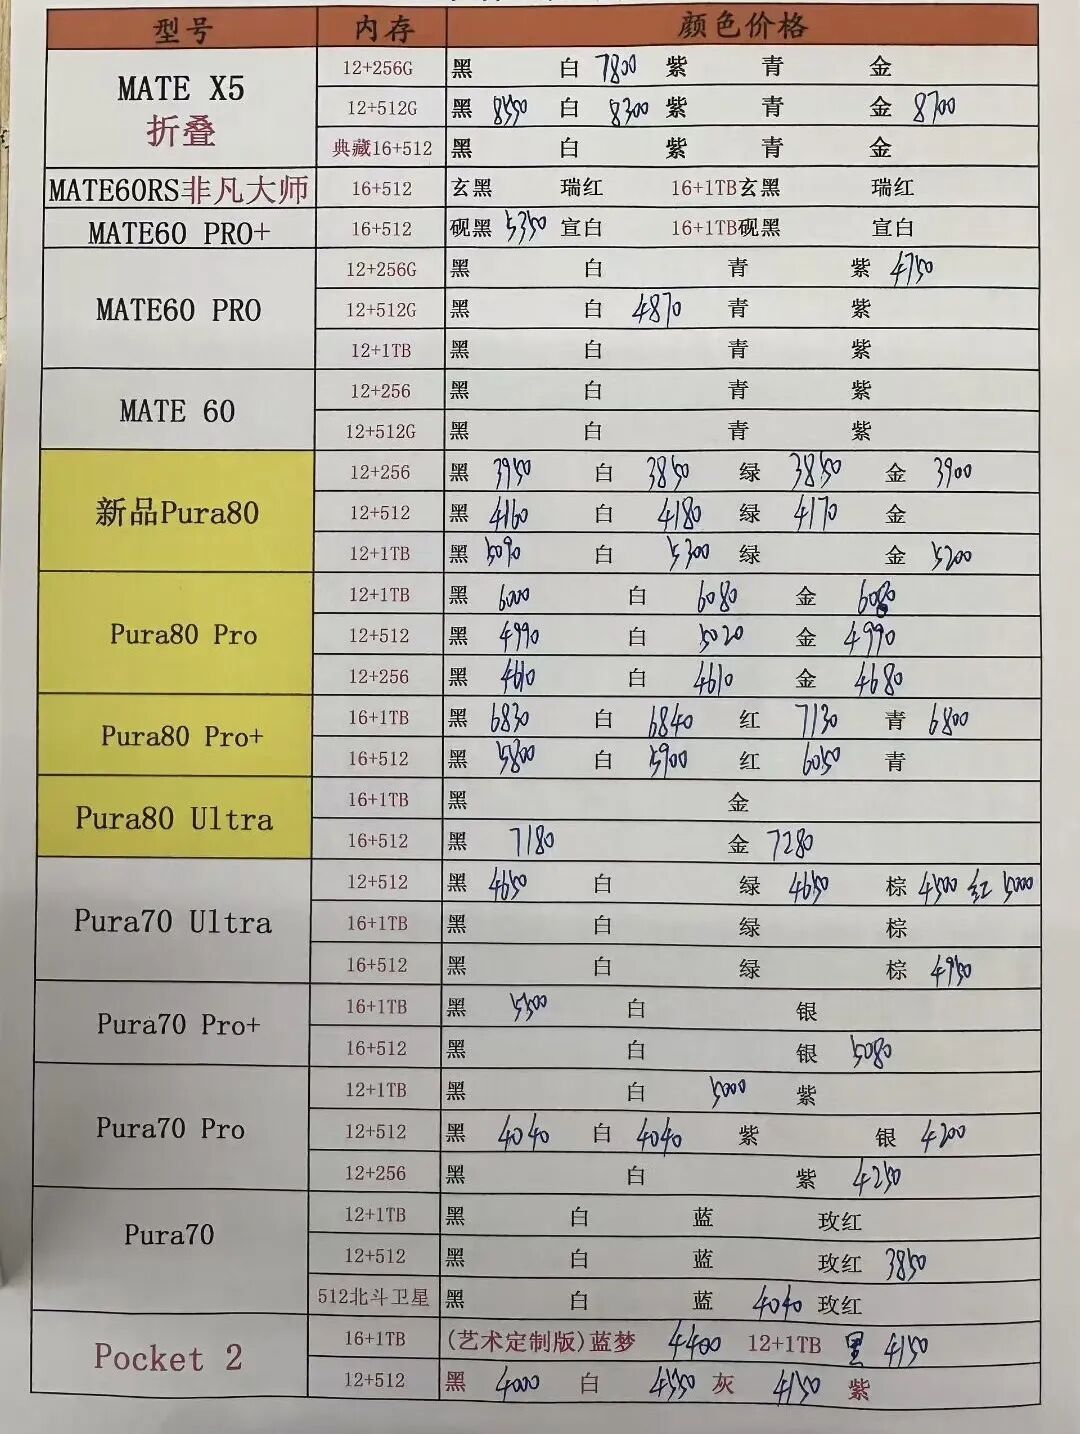 型号 内存 颜色价格
MATE X5 折叠 12+256G 黑 白 7800 紫 青 金
12+512G 黑 8550 白 8300 紫 青 金 8700
典藏16+512 黑 白 紫 青 金
MATE60RS非凡大师 16+512 玄黑 瑞红 16+1TB玄黑 瑞红
MATE60 PRO+ 16+512 砚黑 5350 宣白 16+1TB砚黑 宣白
MATE60 PRO 12+256G 黑 白 青 紫 4750
12+512G 黑 白 4870 青 紫
12+1TB 黑 白 青 紫
MATE 60 12+256 黑 白 青 紫
12+512G 黑 白 青 紫
新品Pura80 12+256 黑 3950 白 3850 绿 3850 金 3900
12+512 黑 4160 白 4180 绿 4170 金
12+1TB 黑 5090 白 5300 绿 金 5200
Pura80 Pro 12+1TB 黑 6000 白 6080 金 6080
12+512 黑 4990 白 5020 金 4990
12+256 黑 4610 白 4610 金 4680
Pura80 Pro+ 16+1TB 黑 6830 白 6840 红 7130 青 6800
16+512 黑 5800 白 5900 红 6050 青
Pura80 Ultra 16+1TB 黑 金
16+512 黑 7180 金 7280
Pura70 Ultra 12+512 黑 4650 白 绿 4650 棕 4500 红 5000
16+1TB 黑 白 绿 棕
16+512 黑 白 绿 棕 4950
Pura70 Pro+ 16+1TB 黑 5500 白 银
16+512 黑 白 银 5080
Pura70 Pro 12+1TB 黑 白 5000 紫
12+512 黑 4040 白 4040 紫 银 4200
12+256 黑 白 紫 4250
Pura70 12+1TB 黑 白 蓝 玫红
12+512 黑 白 蓝 玫红 3850
512北斗卫星 黑 白 蓝 4040 玫红
Pocket 2 16+1TB (艺术定制版)蓝梦 4400 12+1TB 黑 4150
12+512 黑 4000 白 4550 灰 4150 紫